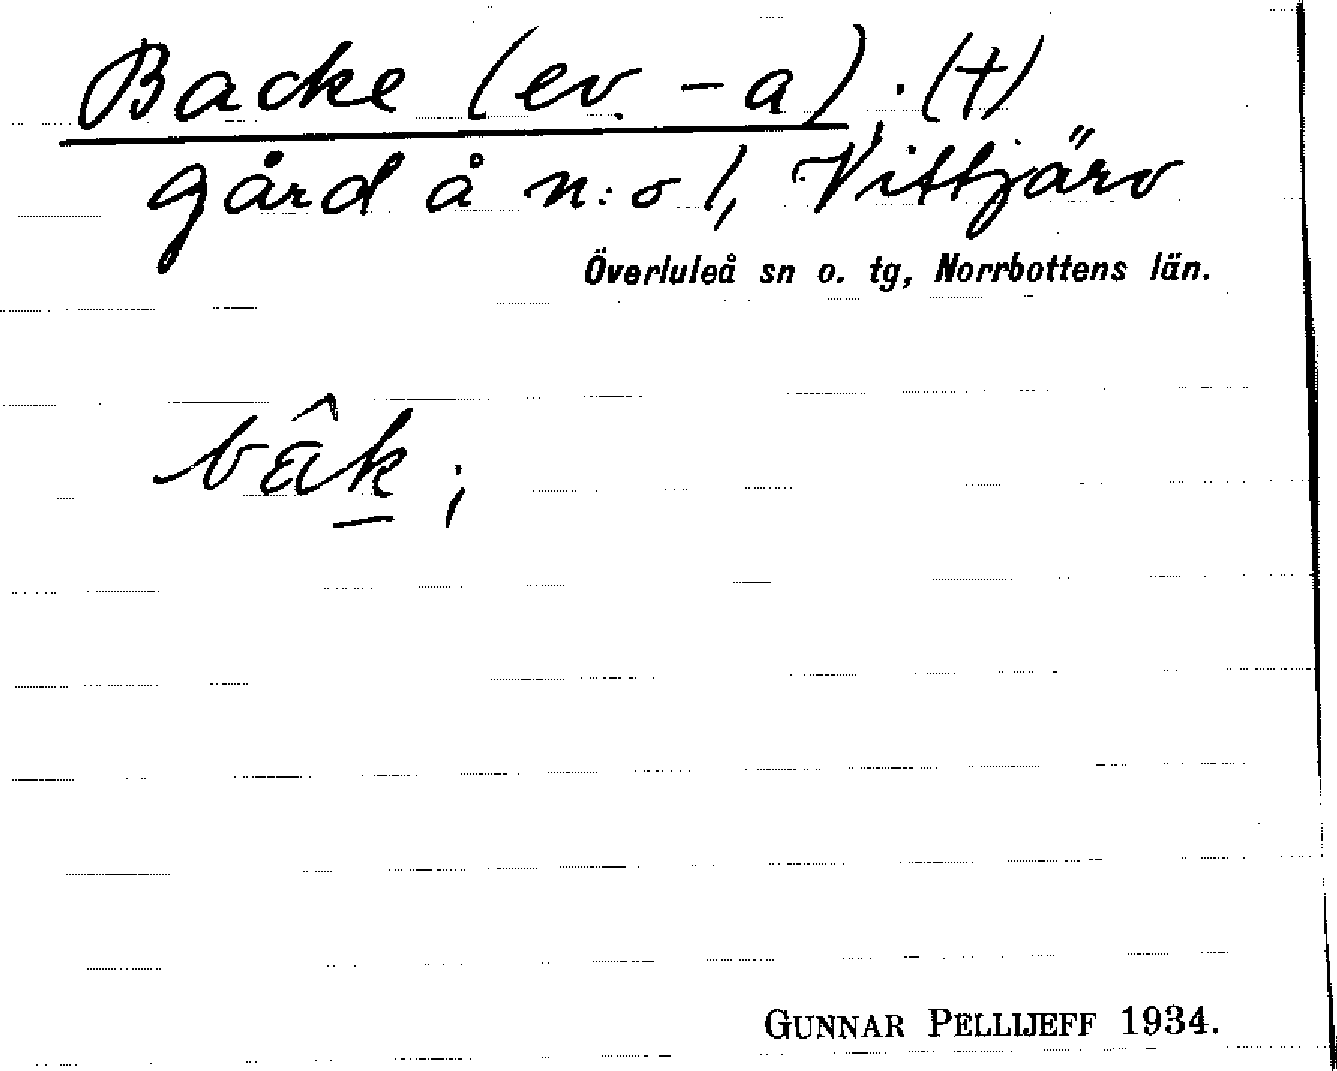 Backe (ev. -a). (†)
gård å n:o 1, Vittjärv
Överluleå sn o. tg, Norrbottens län.
bâk;
GUNNAR PELLIJEFF 1934.